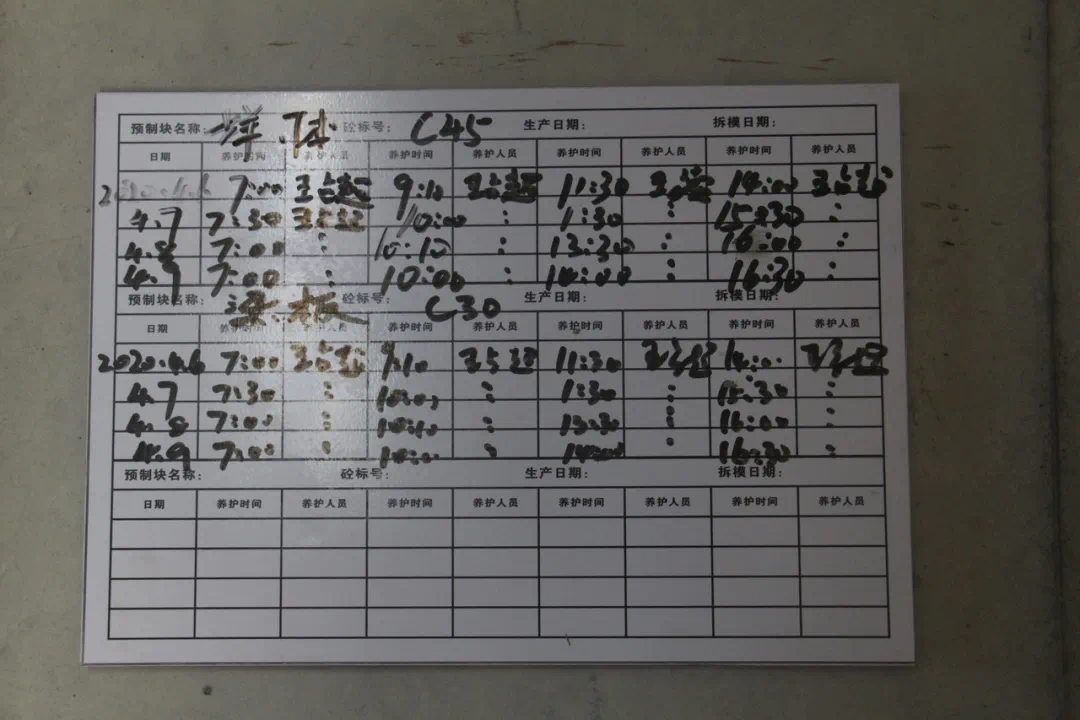 预制块名称: 砼标号: C45 生产日期: 拆模日期:
日期 养护时间 养护人员 养护时间 养护人员 养护时间 养护人员 养护时间 养护人员
2020.4.6 7:00 9:10 11:30 14:00
4.7 7:30 10:00 : 1:30 : 15:30 :
4.8 7:00 : 10:10 : 13:30 : 16:00 :
4.9 7:00 : 10:00 : 14:00 : 16:30 :
预制块名称: 梁.板 砼标号: C30 生产日期: 拆模日期:
日期 养护时间 养护人员 养护时间 养护人员 养护时间 养护人员 养护时间 养护人员
2020.4.6 7:00 9:10 11:30 14:00
4.7 7:30 : 10:00 : 1:30 : 15:30 :
4.8 7:00 : 10:10 : 13:30 : 16:00 :
4.9 7:00 : 10:00 : 14:00 : 16:30 :
预制块名称: 砼标号: 生产日期: 拆模日期:
日期 养护时间 养护人员 养护时间 养护人员 养护时间 养护人员 养护时间 养护人员